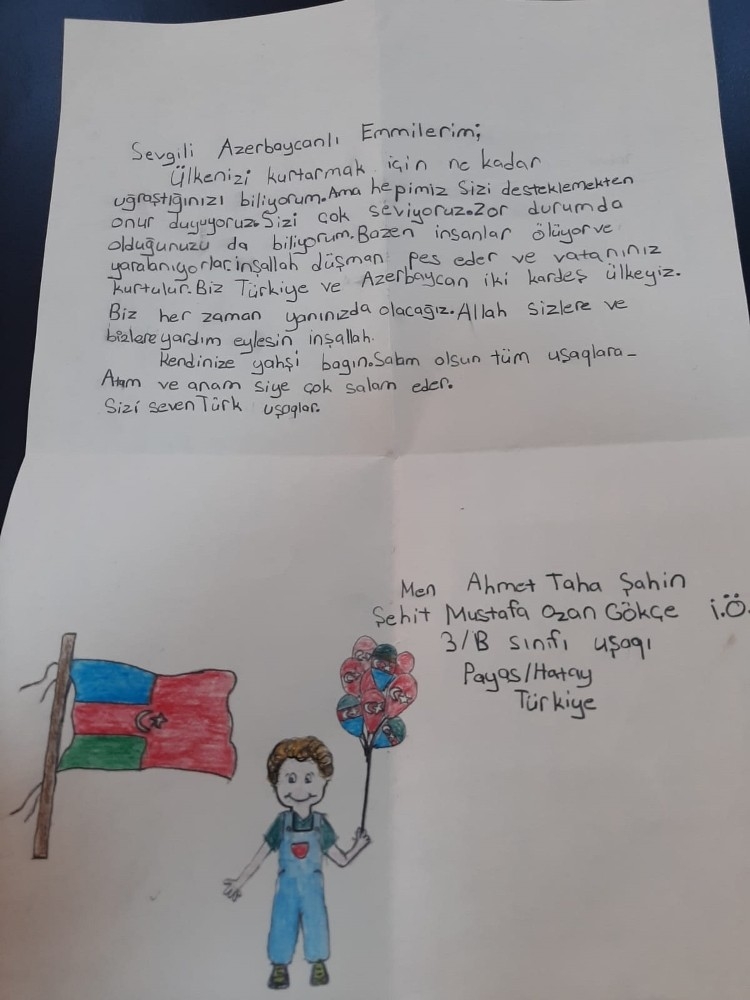 Sevgili Azerbaycanlı Emmilerim;
Ülkenizi kurtarmak için ne kadar
uğraştığınızı biliyorum. Ama hepimiz Sizi desteklemekten
onur duyuyoruz. Sizi çok seviyoruz. Zor durumda
olduğunuzu da biliyorum. Bazen insanlar ölüyor ve
yaralanıyorlar. inşallah düşman pes eder ve vatanınız
kurtulur. Biz Türkiye ve Azerbaycan iki kardeş ülkeyiz.
Biz her zaman yanınızda olacağız. Allah sizlere ve
bizlere yardım eylesin inşallah.
Kendinize yahşi bagın. Salam olsun tüm uşaqlara-
Atam ve anam siye çok salam eder.
Sizi seven Türk uşaqlar.
Men Ahmet Taha Şahin
Şehit Mustafa Ozan Gökçe İ.Ö.
3/B sınıfı uşaqı
Payas/Hatay
Türkiye